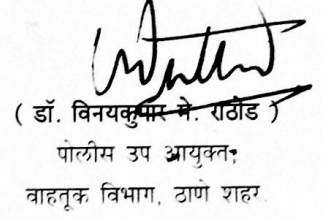 ( डॉ. विनयकुमार मे. राठोड )
पोलीस उप आयुक्त;
वाहतूक विभाग, ठाणे शहर